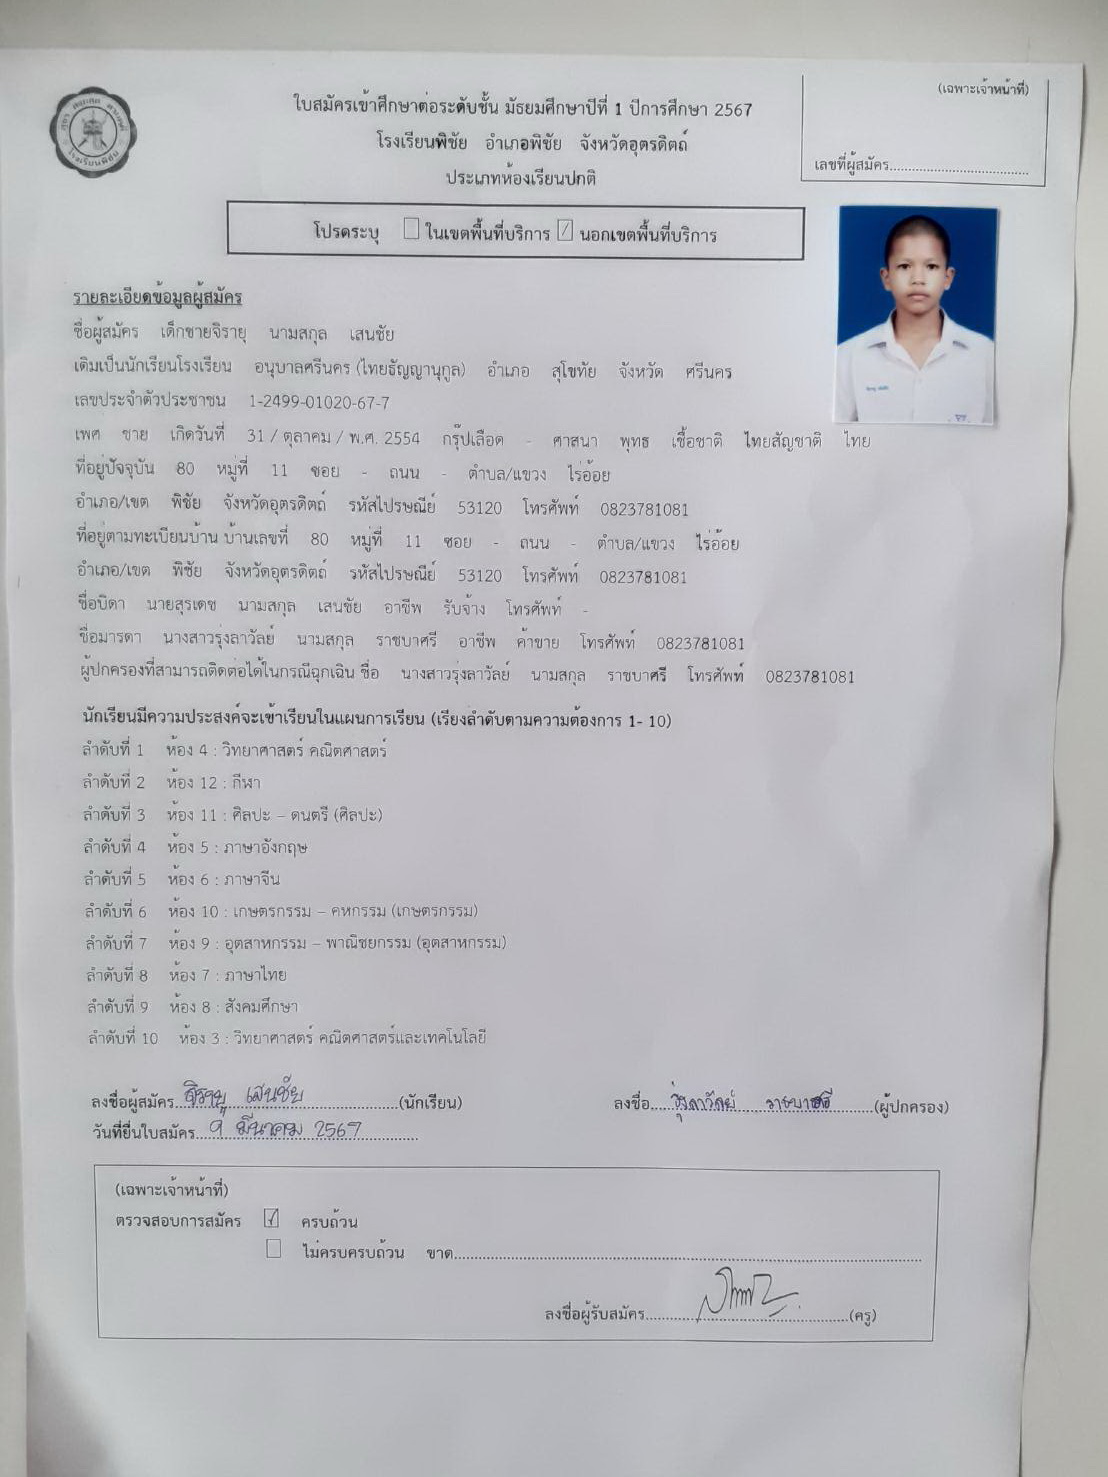 (เฉพาะเจ้าหน้าที่)
ใบสมัครเข้าศึกษาต่อระดับชั้น มัธยมศึกษาปีที่ 1 ปีการศึกษา 2567
โรงเรียนพิชัย อำเภอพิชัย จังหวัดอุตรดิตถ์
เลขที่ผู้สมัคร
ประเภทห้องเรียนปกติ
โปรดระบุ ในเขตพื้นที่บริการ / นอกเขตพื้นที่บริการ
รายละเอียดข้อมูลผู้สมัคร
ชื่อผู้สมัคร เด็กชายจิรายุ นามสกุล เสนชัย
เดิมเป็นนักเรียนโรงเรียน อนุบาลศรีนคร (ไทยธัญญานุกูล) อำเภอ สุโขทัย จังหวัด ศรีนคร
เลขประจำตัวประชาชน 1-2499-01020-67-7
เพศ ชาย เกิดวันที่ 31 / ตุลาคม / พ.ศ. 2554 กรุ๊ปเลือด - ศาสนา พุทธ เชื้อชาติ ไทยสัญชาติ ไทย
ที่อยู่ปัจจุบัน 80 หมู่ที่ 11 ซอย - ถนน - ตำบล/แขวง ไร่อ้อย
อำเภอ/เขต พิชัย จังหวัดอุตรดิตถ์ รหัสไปรษณีย์ 53120 โทรศัพท์ 0823781081
ที่อยู่ตามทะเบียนบ้าน บ้านเลขที่ 80 หมู่ที่ 11 ซอย - ถนน - ตำบล/แขวง ไร่อ้อย
อำเภอ/เขต พิชัย จังหวัดอุตรดิตถ์ รหัสไปรษณีย์ 53120 โทรศัพท์ 0823781081
ชื่อบิดา นายสุรเดช นามสกุล เสนชัย อาชีพ รับจ้าง โทรศัพท์ -
ชื่อมารดา นางสาวรุ่งลาวัลย์ นามสกุล ราชบาศรี อาชีพ ค้าขาย โทรศัพท์ 0823781081
ผู้ปกครองที่สามารถติดต่อได้ในกรณีฉุกเฉิน ชื่อ นางสาวรุ่งลาวัลย์ นามสกุล ราชบาศรี โทรศัพท์ 0823781081
นักเรียนมีความประสงค์จะเข้าเรียนในแผนการเรียน (เรียงลำดับตามความต้องการ 1- 10)
ลำดับที่ 1 ห้อง 4 : วิทยาศาสตร์ คณิตศาสตร์
ลำดับที่ 2 ห้อง 12 : กีฬา
ลำดับที่ 3 ห้อง 11 : ศิลปะ – ดนตรี (ศิลปะ)
ลำดับที่ 4 ห้อง 5 : ภาษาอังกฤษ
ลำดับที่ 5 ห้อง 6 : ภาษาจีน
ลำดับที่ 6 ห้อง 10 : เกษตรกรรม – คหกรรม (เกษตรกรรม)
ลำดับที่ 7 ห้อง 9 : อุตสาหกรรม – พาณิชยกรรม (อุตสาหกรรม)
ลำดับที่ 8 ห้อง 7 : ภาษาไทย
ลำดับที่ 9 ห้อง 8 : สังคมศึกษา
ลำดับที่ 10 ห้อง 3 : วิทยาศาสตร์ คณิตศาสตร์และเทคโนโลยี
ลงชื่อผู้สมัคร จิรายุ เสนชัย (นักเรียน) ลงชื่อ รุ่งลาวัลย์ ราชบาศรี (ผู้ปกครอง)
วันที่ยื่นใบสมัคร 9 มีนาคม 2567
(เฉพาะเจ้าหน้าที่)
ตรวจสอบการสมัคร ✓ ครบถ้วน
ไม่ครบครบถ้วน ขาด
ลงชื่อผู้รับสมัคร (ครู)